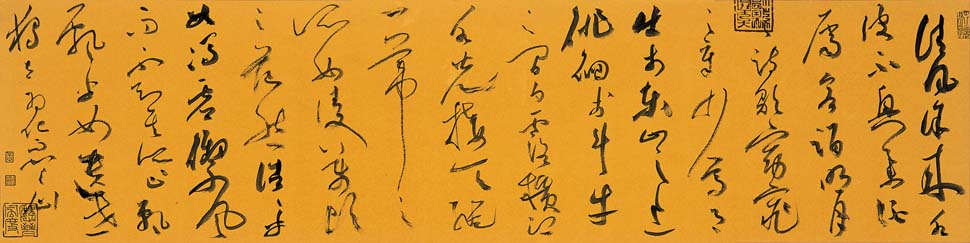 清風徐來水
波不興舉酒
屬客誦明月
之詩歌窈窕
之章少焉月
出於東山之上
徘徊於斗牛
之間白露橫江
水光接天縱
一葦之
所如凌萬頃
之茫然浩浩乎
如馮虛御風
而不知其所止飄
飄乎如遺世
獨立羽化而登仙